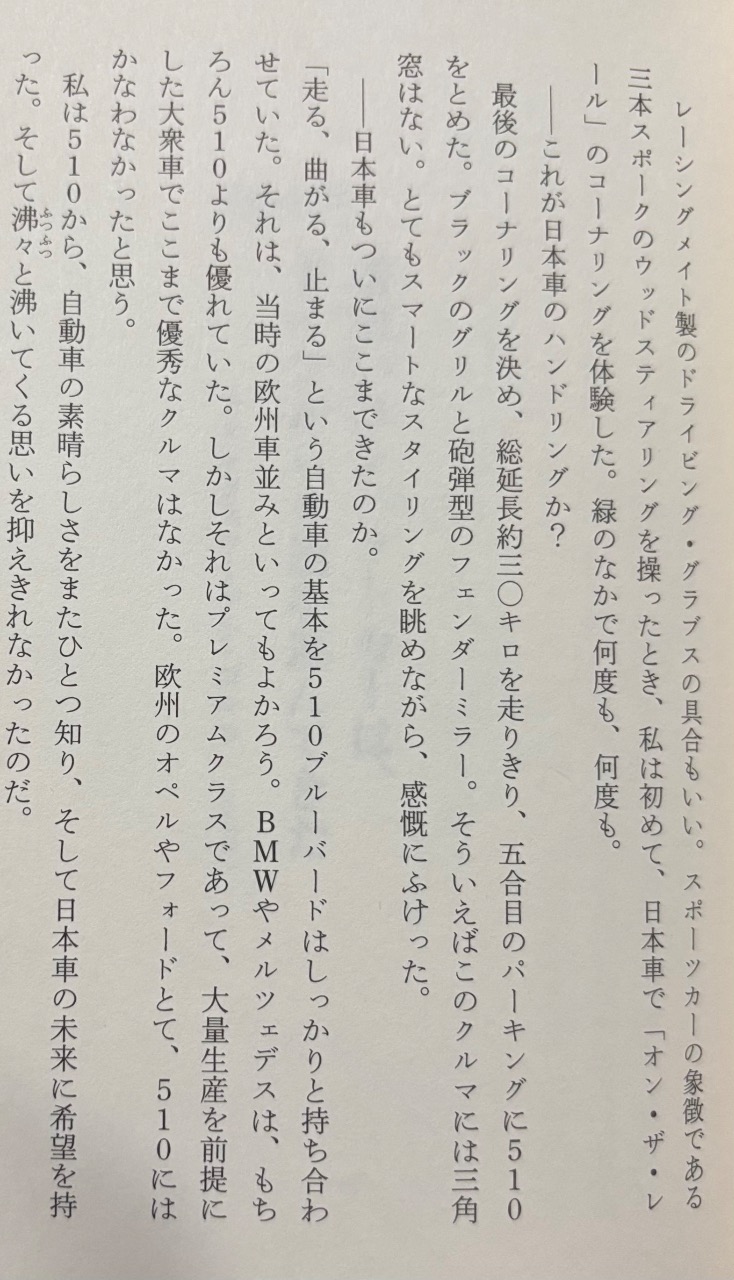 レーシングメイト製のドライビング・グラブスの具合もいい。スポーツカーの象徴である
三本スポークのウッドスティアリングを操ったとき、私は初めて、日本車で「オン・ザ・レ
ール」のコーナリングを体験した。緑のなかで何度も、何度も。
――これが日本車のハンドリングか？
最後のコーナリングを決め、総延長約三〇キロを走りきり、五合目のパーキングに510
をとめた。ブラックのグリルと砲弾型のフェンダーミラー。そういえばこのクルマには三角
窓はない。とてもスマートなスタイリングを眺めながら、感慨にふけった。
――日本車もついにここまできたのか。
「走る、曲がる、止まる」という自動車の基本を510ブルーバードはしっかりと持ち合わ
せていた。それは、当時の欧州車並みといってもよかろう。BMWやメルツェデスは、もち
ろん510よりも優れていた。しかしそれはプレミアムクラスであって、大量生産を前提に
した大衆車でここまで優秀なクルマはなかった。欧州のオペルやフォードとて、510には
かなわなかったと思う。
私は510から、自動車の素晴らしさをまたひとつ知り、そして日本車の未来に希望を持
った。そして沸々と沸いてくる思いを抑えきれなかったのだ。
ふつふつ